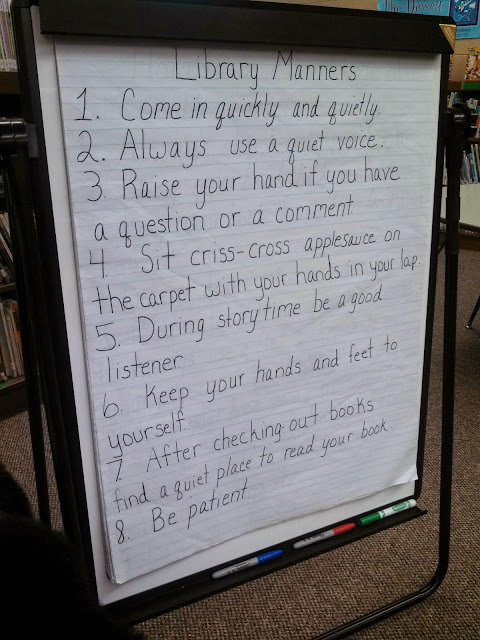 Library Manners
1. Come in quickly and quietly.
2. Always use a quiet voice.
3. Raise your hand if you have
a question or a comment.
4. Sit criss-cross applesauce on
the carpet with your hands in your lap.
5. During storytime be a good
listener.
6. Keep your hands and feet to
yourself.
7. After checking-out books
find a quiet place to read your book.
8. Be patient.